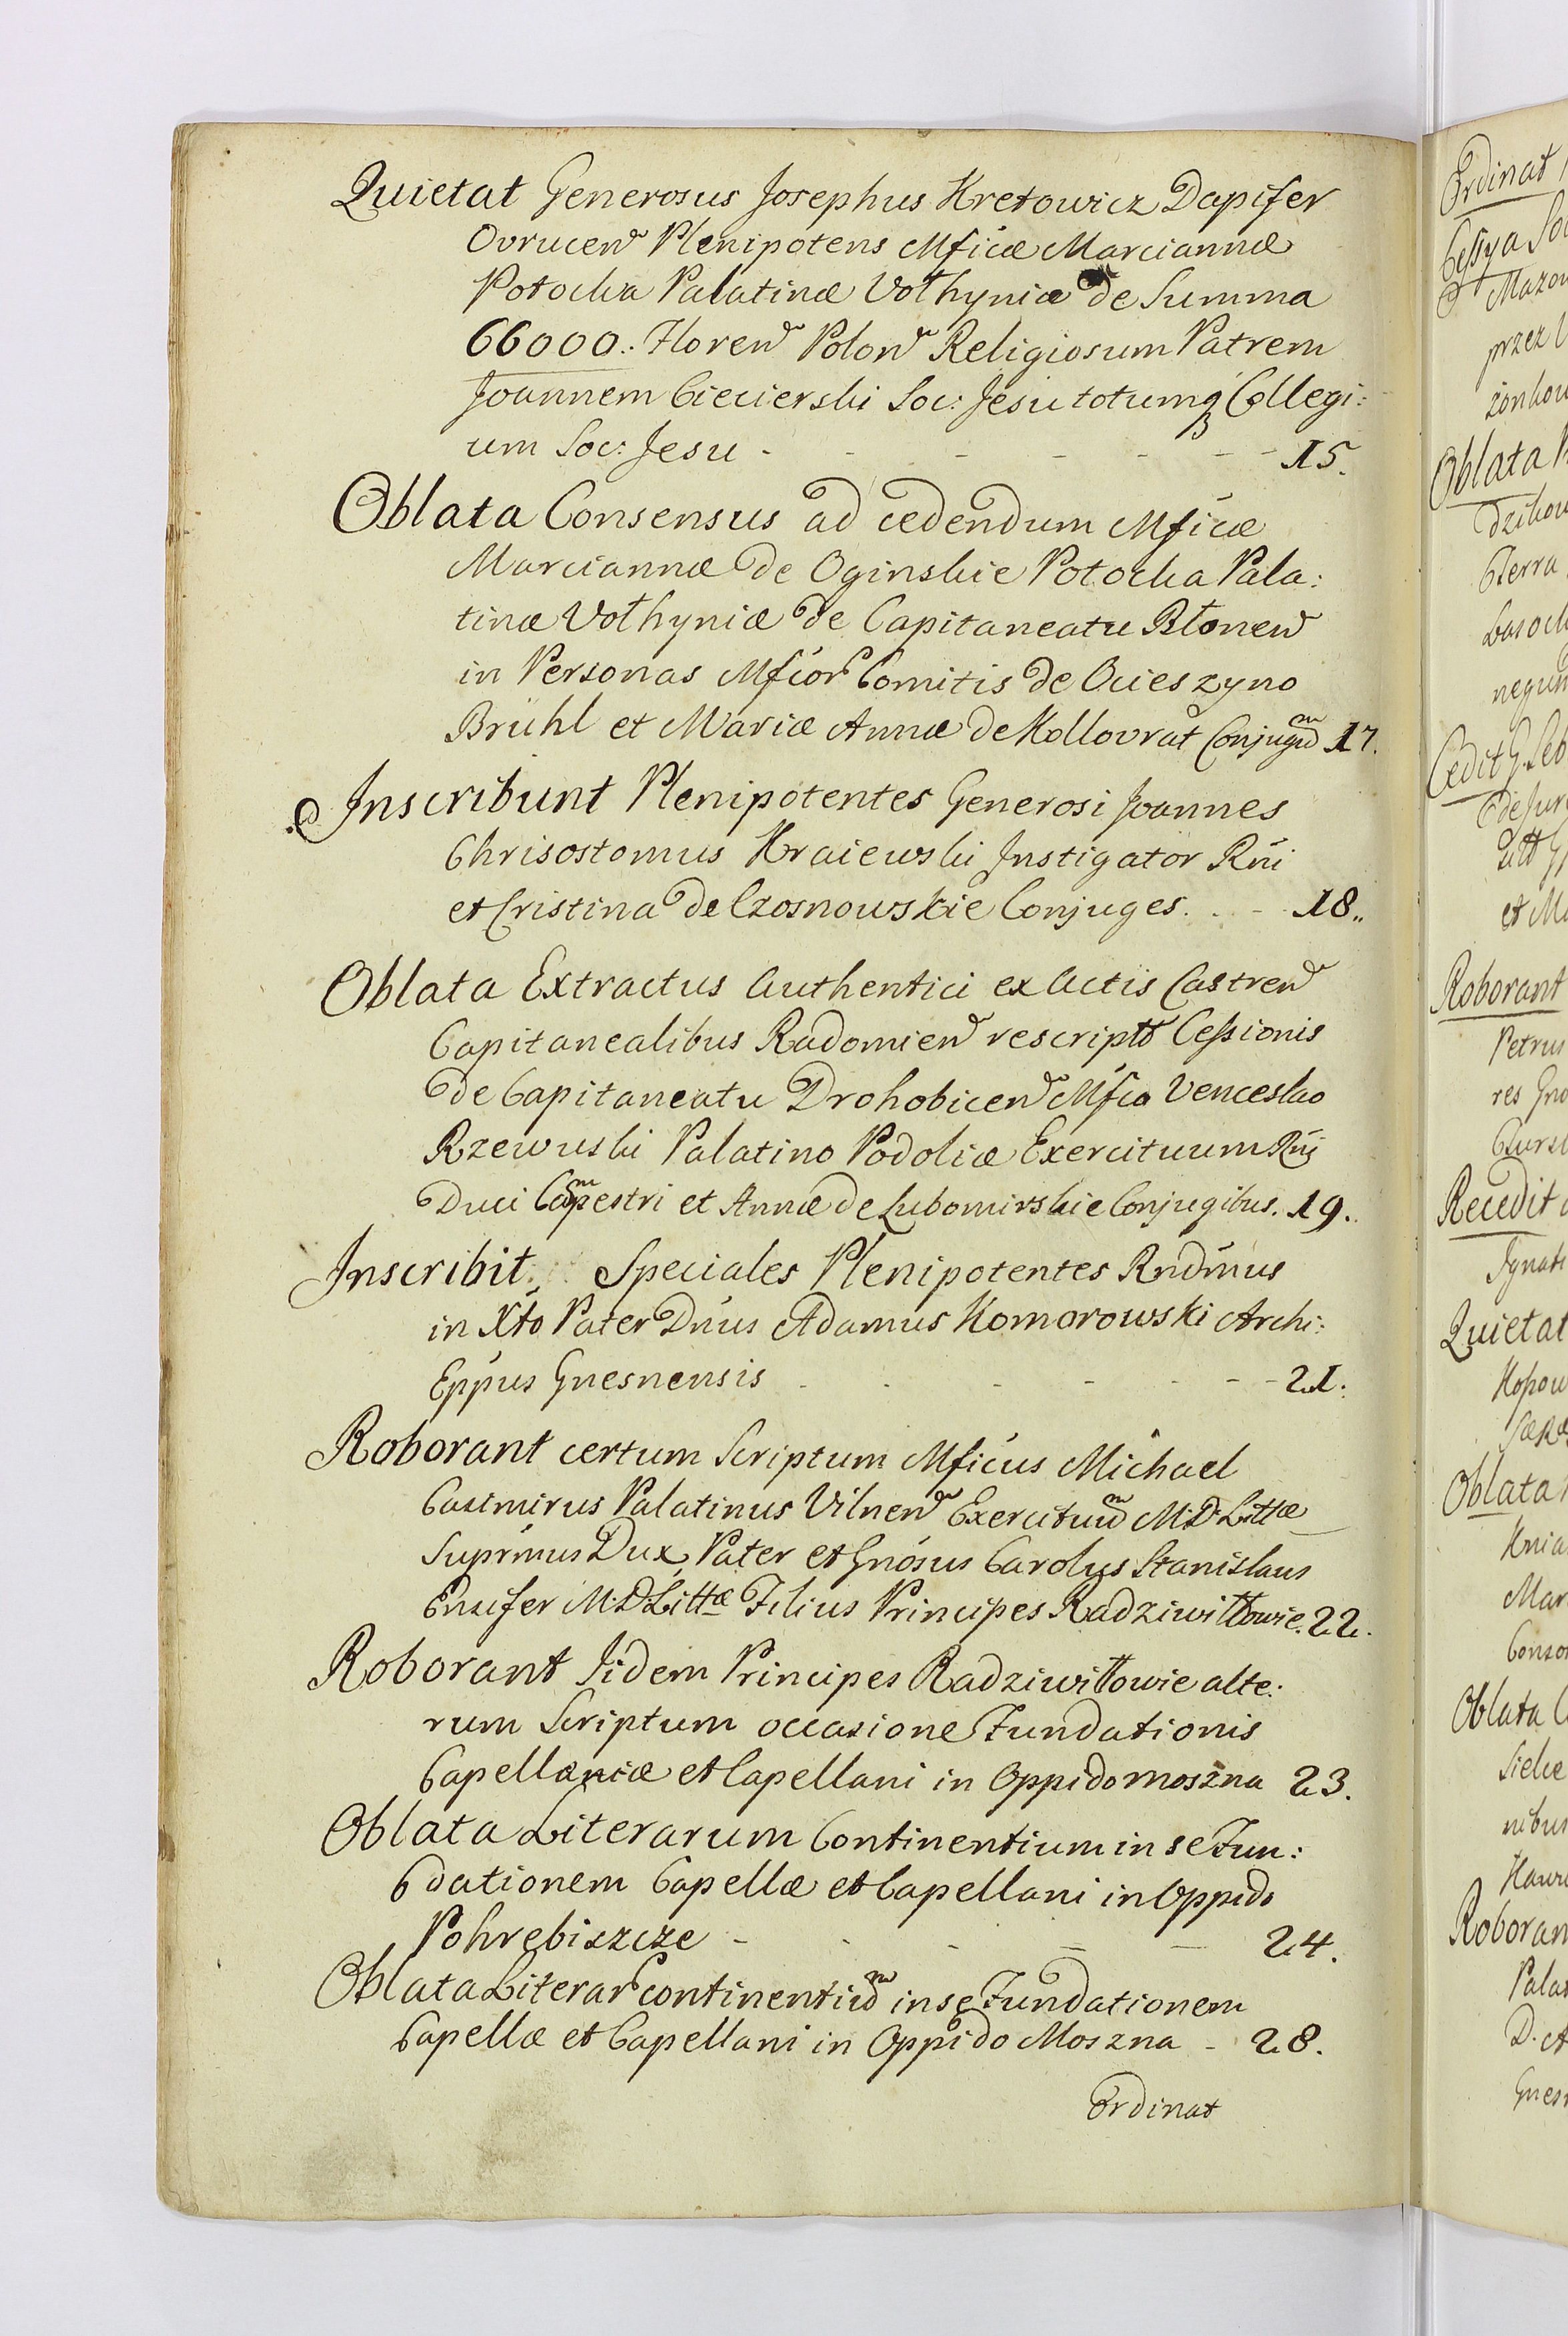 Quietat Generosus Josephus Kretowicz Dapifer
Ovrucen Plenipotens Mficæ Marciannæ
Potocka Palatinæ Vołhyniæ de Summa
66000.: Floren Polon Religiosum Patrem
Joannem Ciecierski Soc: Jesu totumq Collegi:
um Soc: Jesu - - - - - - 15.
Oblata Consensus ad cedendum Mficæ
Marciannæ de Oginskie Potocka Pala:
tinæ Vołhyniæ de Capitaneatu Błonen
in Personas Mficor Comitis de Ocieszyno
Brühl et Mariæ Annæ de Kollovrat Conjugum 17.
Inscribunt Plenipotentes Generosi Joannes
Chrisostomus Kraiewski Instigator Rni
et Cristina de Czosnowskie Conjuges. . - 18.
Oblata Extractus Authentici ex Actis Castren
Capitanealibus Radomien rescriptt Cessionis
de Capitaneatu Drohobicen Mfco Venceslao
Rzewuski Palatino Podoliæ Exercituum Rni
Duci Campestri et Annæ de Lubomirskie Conjugibus. 19.
Inscribit Speciales Plenipotentes Rndmus
in Xto Pater Dnus Adamus Komorowski Archi:
Eppus Gnesnensis - - - - - - 21.
Roborant certum Scriptum Mficus Michael
Casimirus Palatinus Vilnen Exercituum M.D. Littæ
Suprmus Dux Pater et Gnosus Carolus Stanislaus
Ensifer M.D Littæ Filius Principes Radziwiłłowie. 22.
Roborant Iidem Principes Radziwiłłowie alte:
rum Scriptum occasione Fundationis
Capellaniæ et Capellani in Oppido Moszna 23.
Oblata Literarum Continentium in se Fun:
dationem Capellæ et Capellani in Oppido
Pohrebiszcze - - - - - 24.
Oblata Literar continentium in se Fundationem
Capellæ et Capellani in Oppido Moszna - 28.
Ordinat
Ordinat
Cessya
przez
Oblata
Terra
Cedit G. Seb
et
Roborant
Petrus
res
Recedit
Quietat
Oblata
Mar
Oblata
Roboran
Palat